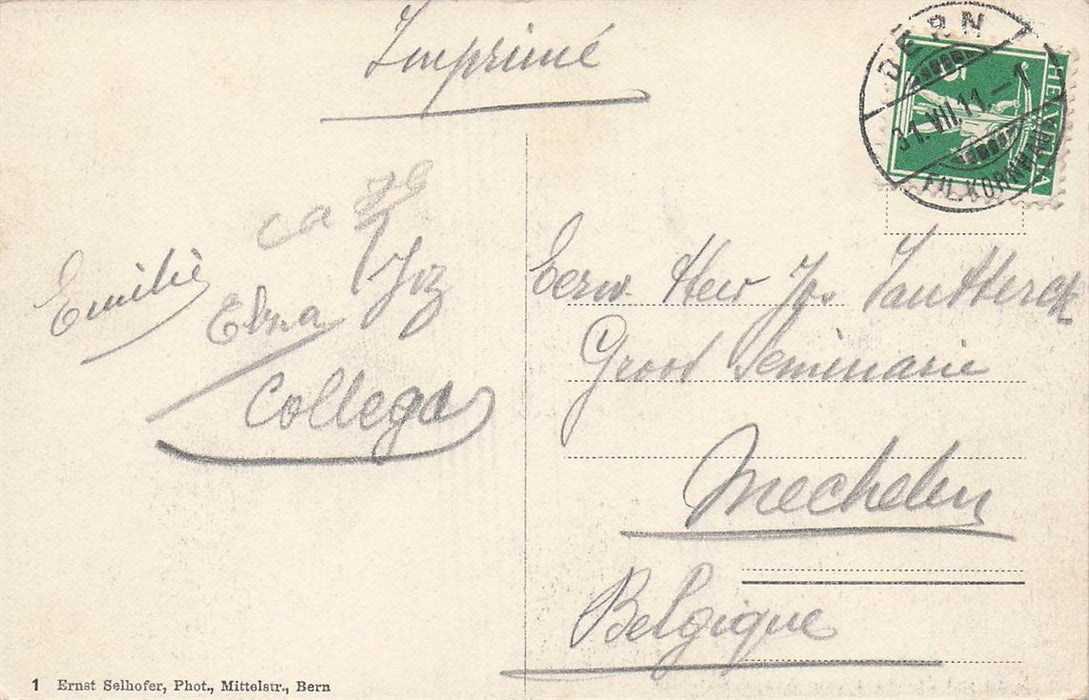 Imprimé
BERN
31.VII.11.–1
FIL. KORNHAUS
HELVETIA
5
Emilie
Elna
Joz
Collega
Eerw. Heer Jos.
Groot Seminarie
Mechelen
Belgique
1 Ernst Selhofer, Phot., Mittelstr., Bern